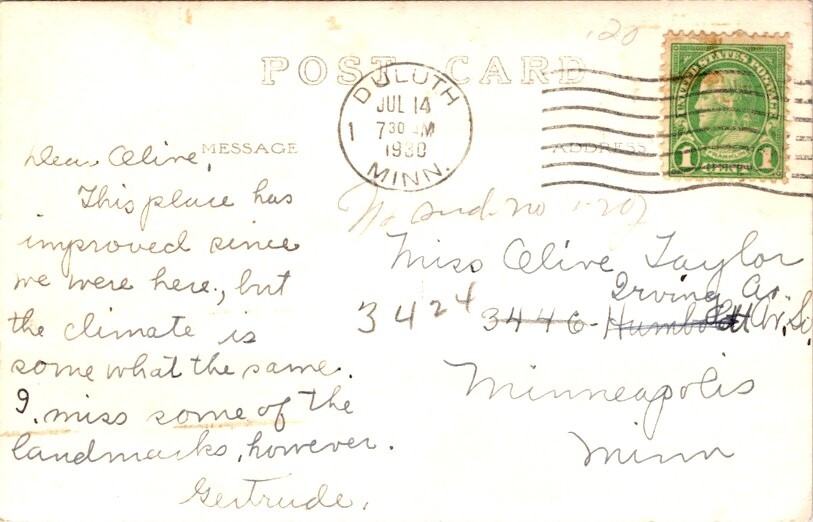 120
POST CARD
DULUTH
JUL 14
1 730 M
1930
MINN.
UNITED STATES POSTAGE
FRANKLIN
1 1
MESSAGE
ADDRESS
Dear Olive,
This place has
improved since
we were here, but
the climate is
some what the same.
I miss some of the
landmarks, however.
Gertrude.
no
Miss Olive Taylor
Irving Av.
3424 3446 Humboldt Av. So.
Minneapolis
Minn